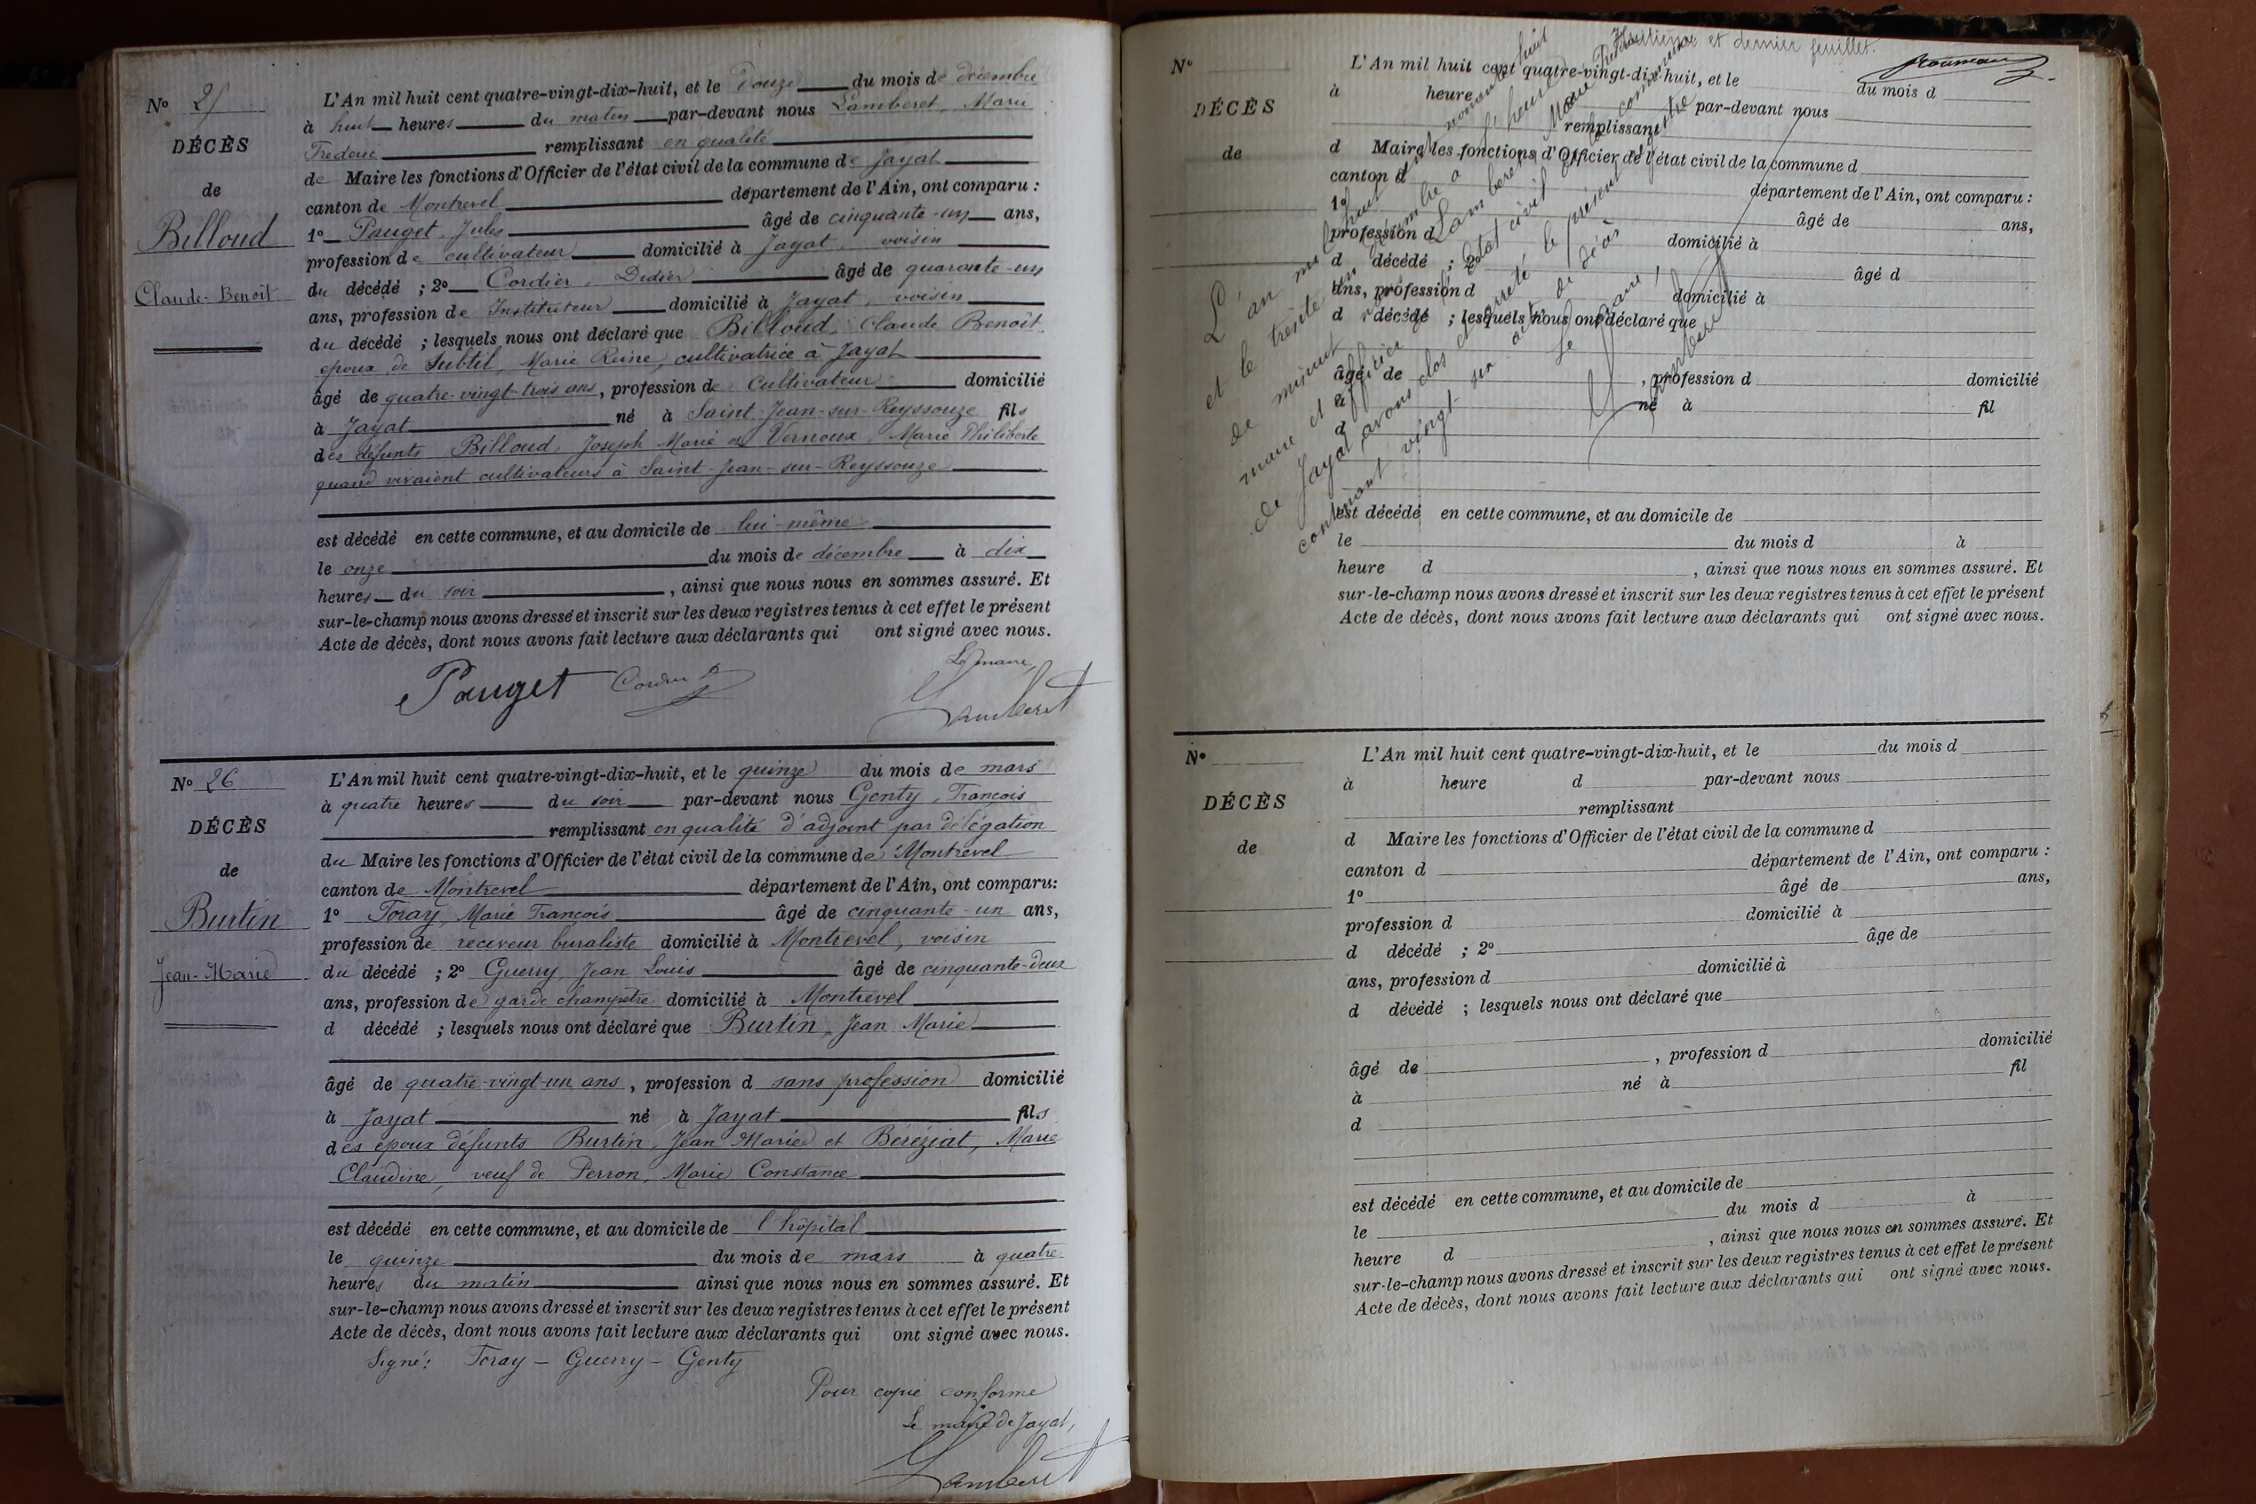 N° 25
DÉCÈS
de
Billoud
Claude-Benoit
L'An mil huit cent quatre-vingt-dix-huit, et le Douze du mois de décembre
à huit heures du matin par-devant nous Lamberet, Marie
Frédéric remplissant en qualité
de Maire les fonctions d'Officier de l'état civil de la commune de Jayat
canton de Montrevel département de l'Ain, ont comparu :
1° Pauget, Jules âgé de cinquante-un ans,
profession de cultivateur domicilié à Jayat, voisin
du décédé ; 2° Cordier, Didier âgé de quarante-un
ans, profession de Instituteur domicilié à Jayat, voisin
du décédé ; lesquels nous ont déclaré que Billoud, Claude Benoît,
époux de Subtil, Marie Reine, cultivatrice à Jayat
âgé de quatre-vingt-trois ans, profession de Cultivateur domicilié
à Jayat né à Saint-Jean-sur-Reyssouze fils
des défunts Billoud, Joseph Marie et Vernoux, Marie Philiberte
quand vivaient cultivateurs à Saint-Jean-sur-Reyssouze
est décédé en cette commune, et au domicile de lui-même
le onze du mois de décembre à dix
heures du soir, ainsi que nous nous en sommes assuré. Et
sur-le-champ nous avons dressé et inscrit sur les deux registres tenus à cet effet le présent
Acte de décès, dont nous avons fait lecture aux déclarants qui ont signé avec nous.
Le maire,
Pauget Cordier D Lamberet
N° 26
DÉCÈS
de
Burtin
Jean-Marie
L'An mil huit cent quatre-vingt-dix-huit, et le quinze du mois de mars
à quatre heures du soir par-devant nous Genty, François
remplissant en qualité d'adjoint par délégation
du Maire les fonctions d'Officier de l'état civil de la commune de Montrevel
canton de Montrevel département de l'Ain, ont comparu:
1° Foray, Marie François âgé de cinquante-un ans,
profession de receveur buraliste domicilié à Montrevel, voisin
du décédé ; 2° Guerry, Jean Louis âgé de cinquante-deux
ans, profession de garde champêtre domicilié à Montrevel
d décédé ; lesquels nous ont déclaré que Burtin, Jean Marie
âgé de quatre-vingt-un ans, profession d sans profession domicilié
à Jayat né à Jayat fils
des époux défunts Burtin, Jean Marie et Béréziat, Marie
Claudine, veuf de Perron, Marie Constance
est décédé en cette commune, et au domicile de l'hôpital
le quinze du mois de mars à quatre
heures du matin ainsi que nous nous en sommes assuré. Et
sur-le-champ nous avons dressé et inscrit sur les deux registres tenus à cet effet le présent
Acte de décès, dont nous avons fait lecture aux déclarants qui ont signé avec nous.
Signé: Foray - Guerry - Genty
Pour copie conforme
Le maire de Jayat,
Lamberet
et dernier feuillet.
N°
DÉCÈS
de
L'An mil huit cent quatre-vingt-dix-huit, et le du mois d
à heure d par-devant nous
remplissant
d Maire les fonctions d'Officier de l'état civil de la commune d
canton d département de l'Ain, ont comparu :
1° âgé de ans,
profession d domicilié à
d décédé ; 2° âgé d
ans, profession d domicilié à
d décédé ; lesquels nous ont déclaré que
âgé de , profession d domicilié
à né à fil
d
est décédé en cette commune, et au domicile de
le du mois d à
heure d , ainsi que nous nous en sommes assuré. Et
sur-le-champ nous avons dressé et inscrit sur les deux registres tenus à cet effet le présent
Acte de décès, dont nous avons fait lecture aux déclarants qui ont signé avec nous.
L'an mil huit cent
et le trente un décembre à heure
de minuit Lamberet Marie
maire et officier de l'état civil de la commune
de Jayat, avons clos et arrêté le présent registre
contenant vingt-six actes de décès
Le Maire,
Lamberet
N°
DÉCÈS
de
L'An mil huit cent quatre-vingt-dix-huit, et le du mois d
à heure d par-devant nous
remplissant
d Maire les fonctions d'Officier de l'état civil de la commune d
canton d département de l'Ain, ont comparu :
1° âgé de ans,
profession d domicilié à
d décédé ; 2° âge de
ans, profession d domicilié à
d décédé ; lesquels nous ont déclaré que
âgé de , profession d domicilié
à né à fil
d
est décédé en cette commune, et au domicile de
le du mois d à
heure d , ainsi que nous nous en sommes assuré. Et
sur-le-champ nous avons dressé et inscrit sur les deux registres tenus à cet effet le présent
Acte de décès, dont nous avons fait lecture aux déclarants qui ont signé avec nous.